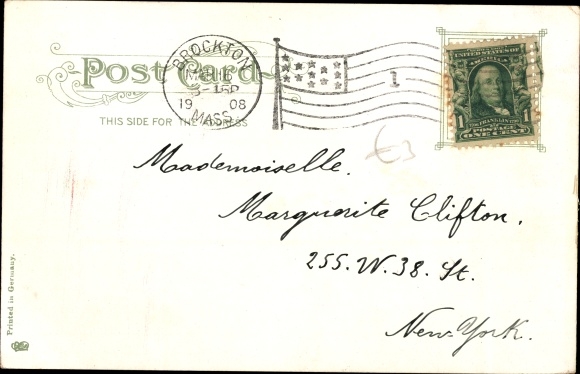 Post Card
BROCKTON
3-
19 08
MASS.
1
THIS SIDE FOR THE ADDRESS
UNITED STATES OF AMERICA
FRANKLIN
1 POSTAGE 1
ONE CENT
€3
Mademoiselle.
Marguerite Clifton.
255. W. 38. St.
New York.
Printed in Germany.